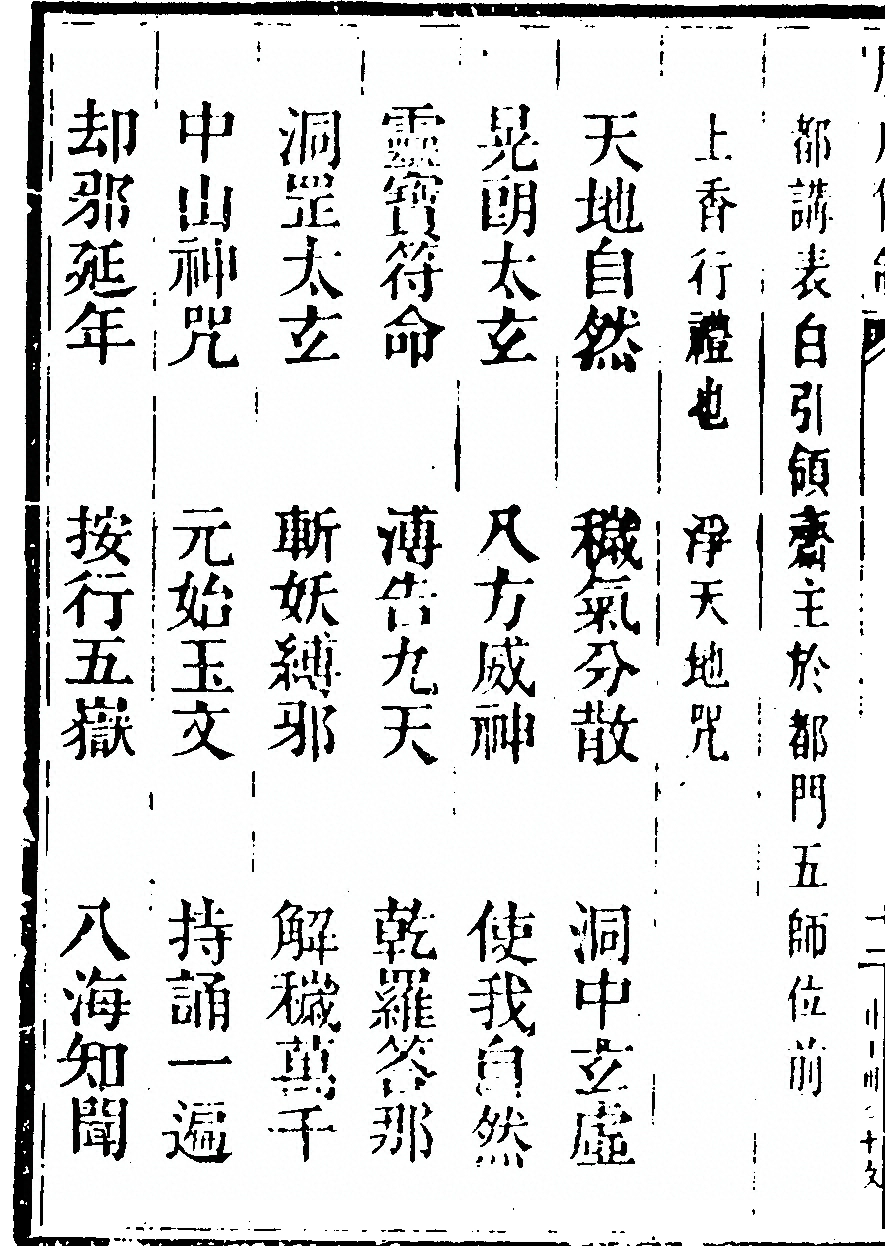 都講表白引領齋主於都門五師位前
上香行禮也　淨天地咒
天地自然　穢氣分散　洞中玄虛
晃朗太玄　八方威神　使我自然
靈寶符命　溥告九天　乾羅答那
洞罡太玄　斬妖縛邪　解穢萬千
中山神咒　元始玉文　持誦一遍
却邪延年　按行五嶽　八海知聞